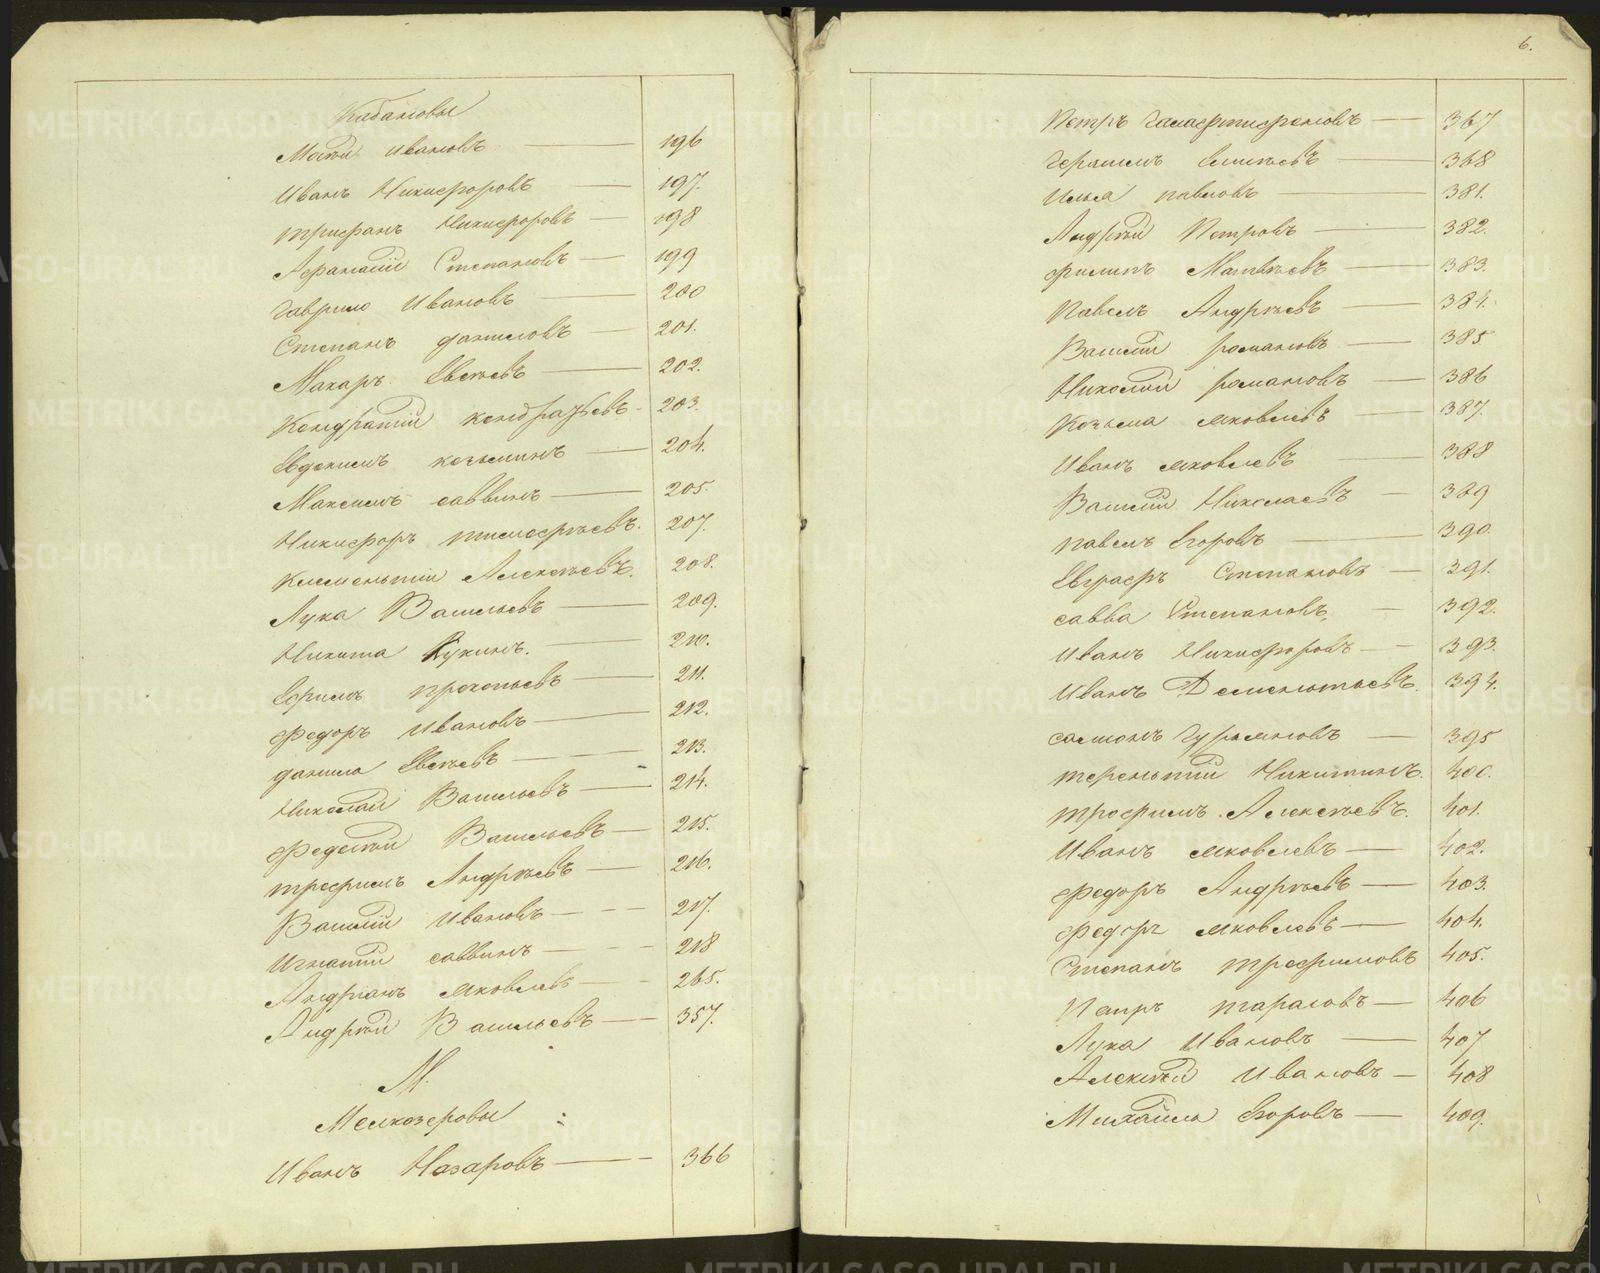 Кабановы
Матвѣй Ивановъ 196
Иванъ Никифоровъ 197.
Трифанъ Никифоровъ 198
Афанасій Степановъ 199
Гаврило Ивановъ 200
Степанъ Даниловъ 201.
Макаръ Евсѣевъ 202.
Кондратій Кондратьевъ 203.
Евдокимъ Козьминъ 204.
Максимъ Саввинъ 205.
Никифоръ Тимофѣевъ. 207.
Клементій Алексѣевъ. 208.
Лука Васильевъ 209.
Никита Лукинъ. 210.
Ефимъ Прокопьевъ 211.
Федоръ Ивановъ 212.
Данило Евсѣевъ 213.
Николай Васильевъ 214.
Федосѣй Васильевъ 215.
Трофимъ Андрѣевъ 216.
Василій Ивановъ 217.
Игнатій Саввинъ 218
Андріанъ Яковлевъ 265.
Андрѣй Васильевъ 357.
М.
Мелкозеровы
Иванъ Назаровъ 366
6.
Петръ 367
Герасимъ 368
Илья Павловъ 381.
Андрѣй Петровъ 382.
Филипъ Матвѣевъ 383.
Павелъ Андрѣевъ 384.
Василій Романовъ 385
Николай Романовъ 386
Козьма Яковлевъ 387.
Иванъ Яковлевъ 388
Василій Николаевъ 389
Павелъ Егоровъ 390.
Евграфъ Степановъ 391.
Савва Степановъ 392.
Иванъ Никифоровъ 393.
Иванъ Деменьтьевъ. 394.
Самсонъ Гурьяновъ 395
Терентій Никитинъ. 400.
Трофимъ Алексѣевъ. 401.
Иванъ Яковлевъ 402.
Федоръ Андрѣевъ 403.
Федоръ Яковлевъ 404.
Степанъ Трофимовъ 405.
Петръ Тарасовъ 406
Лука Ивановъ 407
Алексѣй Ивановъ 408
Михайло Егоровъ 409.